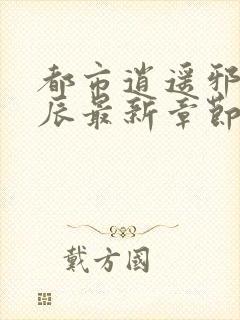 都市逍遥邪
辰最新章節
戴方國